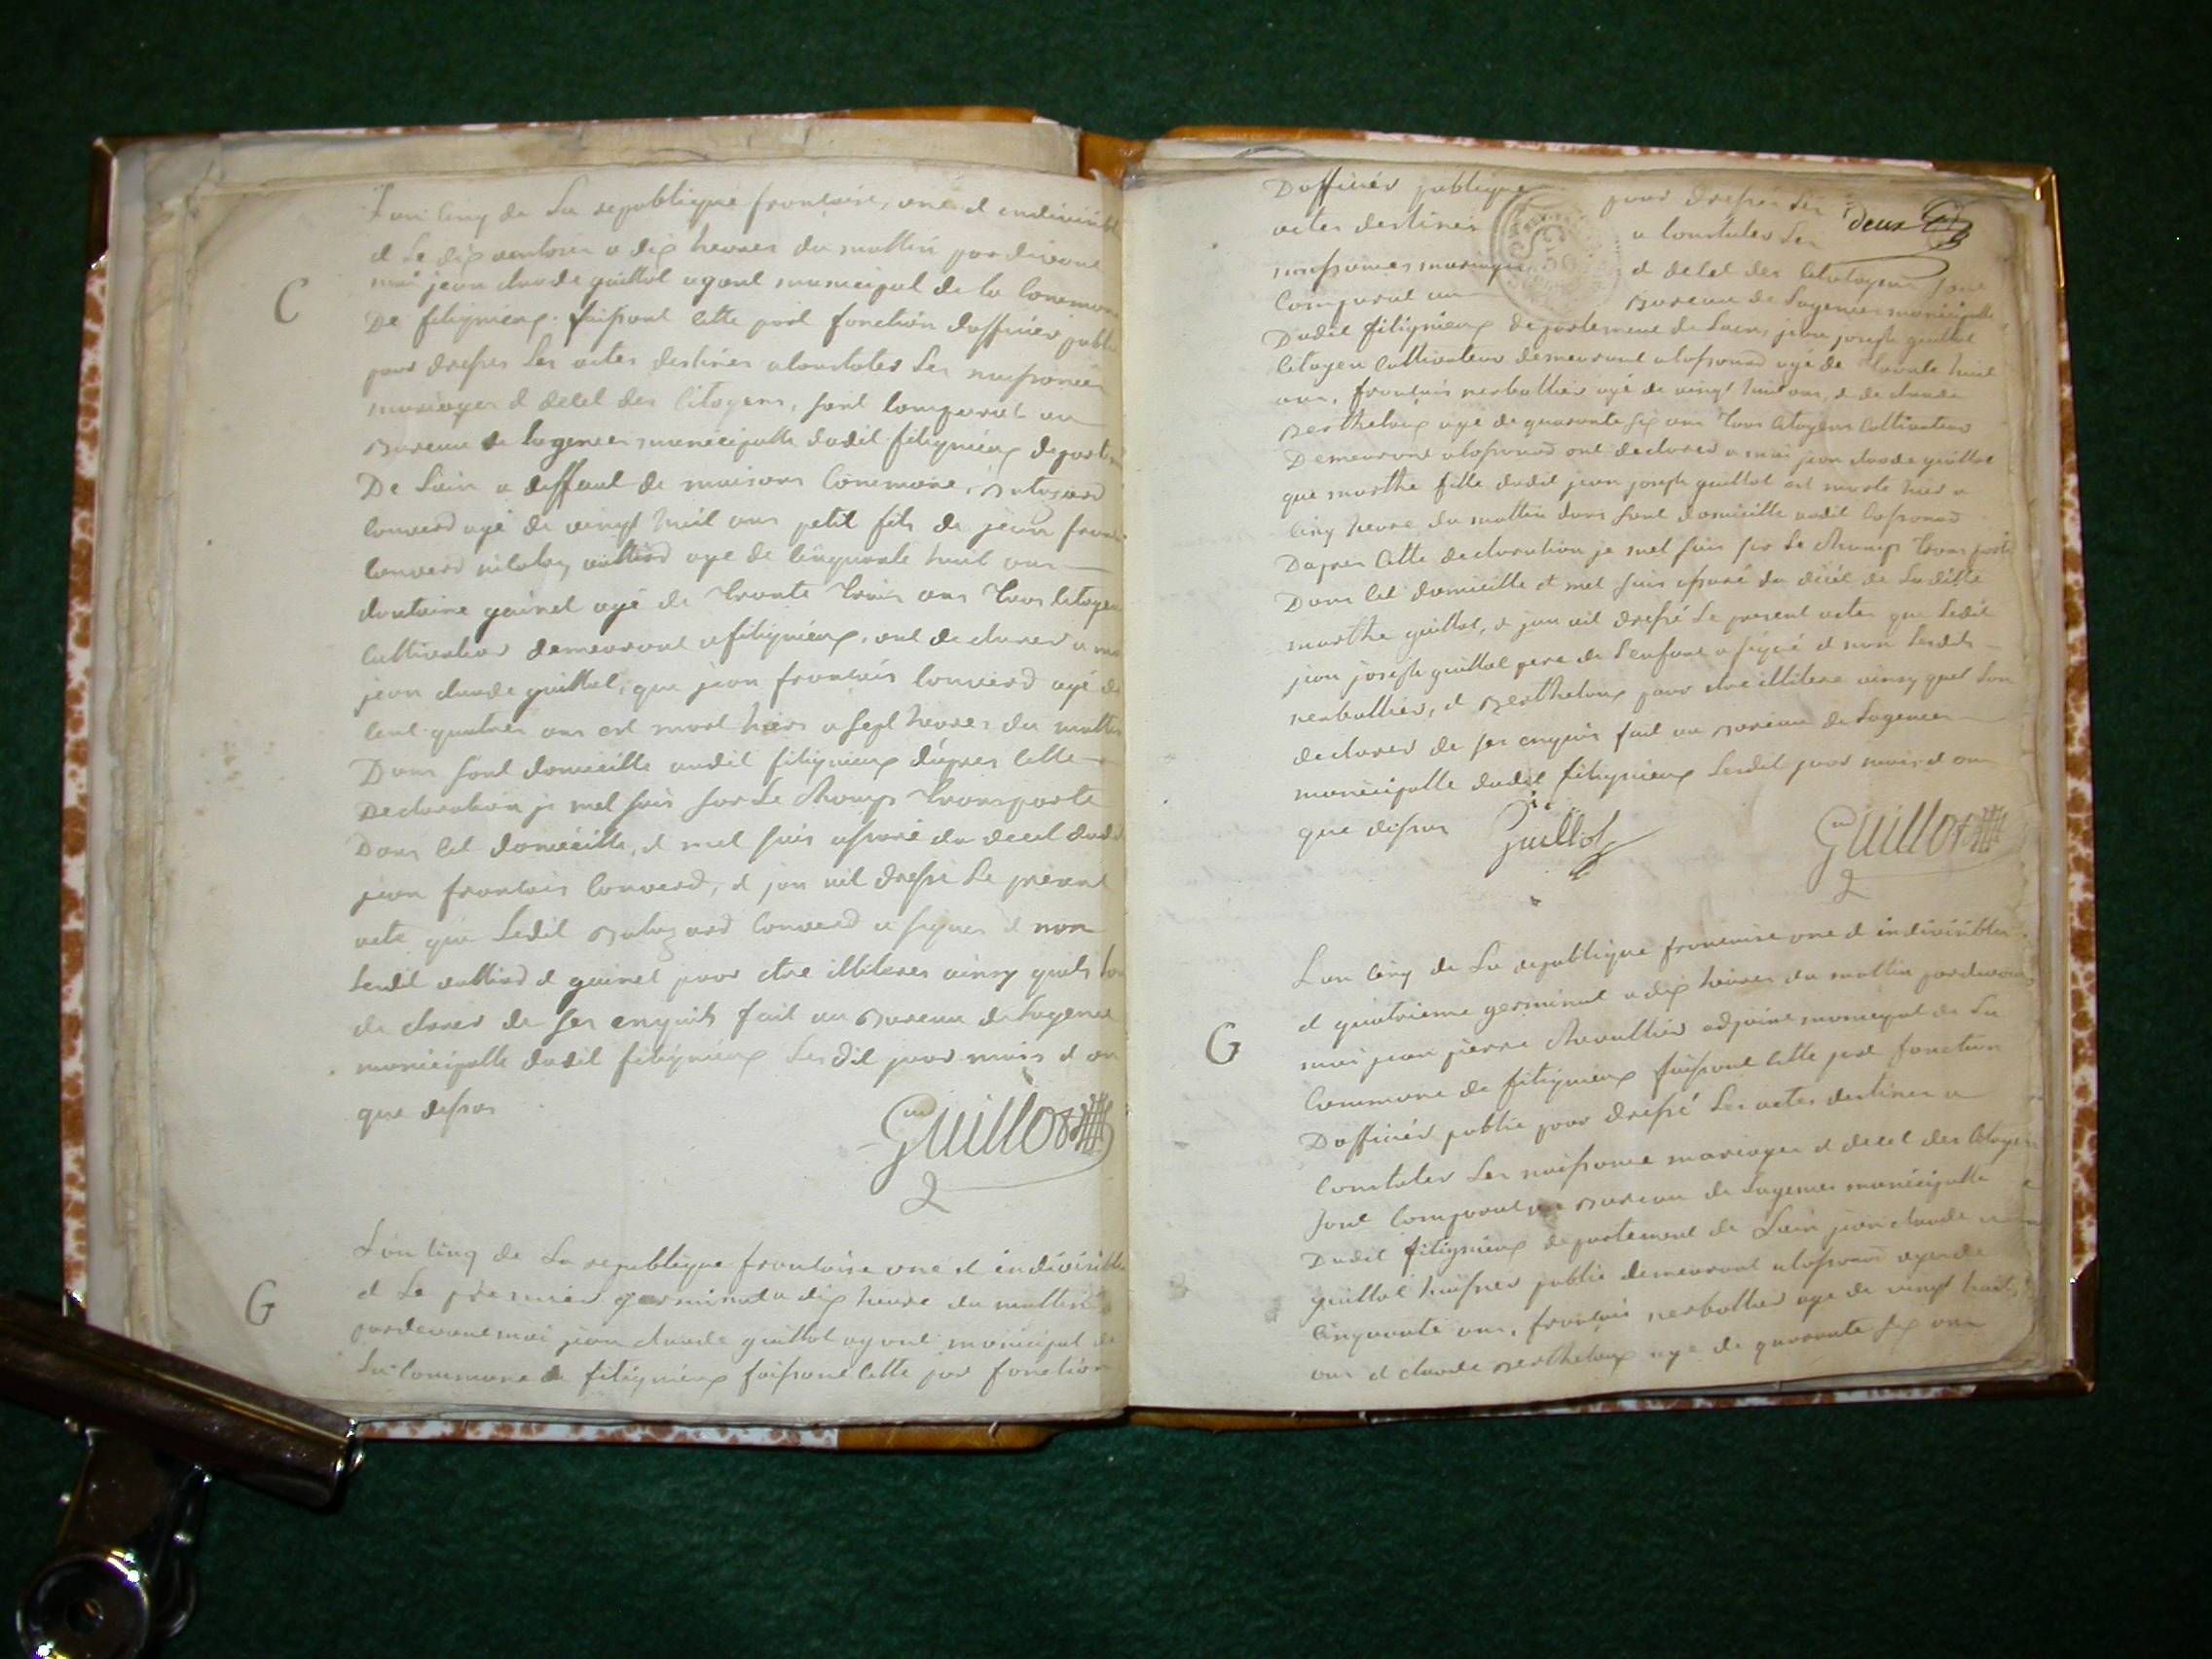 L'an cinq de La republique francoise, une et indivisible
et Le dix ventose a dix heures du mattin par devant
moi jean claude guillot agent municipal de la Commune
C
De fitignieux faisant cette part fonction dofficier public
pour dresser Les actes destines a constater Les naissances
mariages et decet des Citoyens, sont comparut au
Bureau de Lagence municipalle dudit fitignieux departem
De Lain a deffaut de maison Commune, Batazard
Converd agé de vingt huit ans petit fils de jean francois
Converd nicolas aage de cinquante huit ans
gainet agé de trante trois ans tous Citoyens
Cultivateur demeurant a fitignieux, ont declarer a moi
jean claude guillot, que jean francois Converd agé de
Cent quatre ans est mort hier a sept heures du mattin
Dans sont domicille audit fitignieux d'apres cette
Declaration je met suis sur Le Champ transporte
Dans cet domicille, et met suis assuré du decet dudit
jean francois Converd, et jan nit dressé Le present
acte que Ledit Batazard Converd a signer et non
Lesdit et gainet pour etre illiteres ainsy quils ont
declarer de ses enquits fait au Bureau de Lagence
municipalle dudit fitignieux Lesdit jour mois et an
que dessus
Guillot
L'an cinq de La republique francoise une et indivisible
G
et Le premier germinal a dix heure du mattin
pardevant moi jean claude guillot agent municipal de
La Commune de fitignieux faisant cette par fonction
Dofficier publique pour dresser Les deux
actes destines a constater Les
naissances mariages et decet des Citoyens sont
Comparut au Bureau de Lagence municipalle
Dudit fitignieux departement de Lain, jean joseph guillot
Citoyen Cultivateur demeurant a lossonod agé de huit
ans, francois nerbollier agé de vingt huit ans, et de claude
Bertheloux agé de quarante six ans tous Citoyens Cultivateur
Demeurant a lossonod ont declarer a moi jean claude guillot
que marthe fille dudit jean joseph guillot est morte hier a
cinq heure du mattin dans sont domicille audit lossonod
Dapres cette declaration je met suis sur Le Champ transporté
Dans cet domicille et met suis assuré du décét de Laditte
marthe guillot, et jan nit dressé Le present acte que Ledit
jean joseph guillot pere de Lenfant a signé et non Lesdits
nerbollier, et Bertheloux pour etre illitere ainsy quet lon
declarer de ses enquis fait au Bureau de Lagence
municipalle dudit fitignieux Lesdit jour mois et an
que dessus Guillot Guillot
L'an cinq de La republique francoise une et indivisible
et quatrieme germinal a dix heures du mattin pardevant
G
moi jean pierre Chevallier adjoint municipal de La
Commune de fitignieux faisant cette part fonction
Dofficier public pour dressé Les actes destines a
Constater Les naissance mariages et decet des Citoyens
sont Comparut au Bureau de Lagence municipalle
Dudit fitignieux departement de Lain jean claude
guillot huissier public demeurant a lossonod age de
Cinquante ans, francois nerbollier age de vingt huit
ans et claude Bertheloux age de quarante six ans